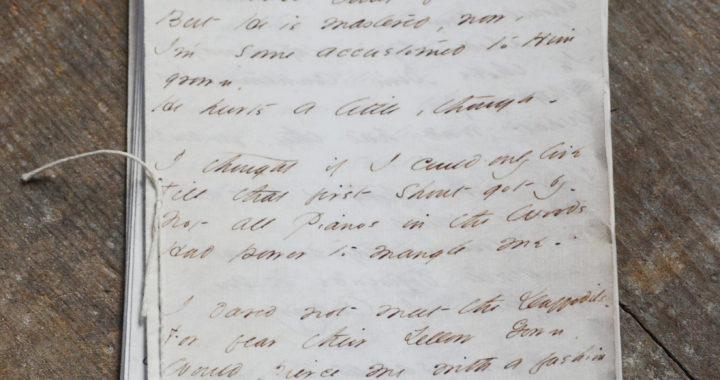 But He is mastered, now,
I'm some accustomed to Him
grown,
He hurts a little, though -
I thought if I could only live
Till that first Shout got by -
Not all Pianos in the Woods
Had power to mangle me -
I dared not meet the Daffodils -
For fear their Yellow Gown
Would pierce me with a fashion